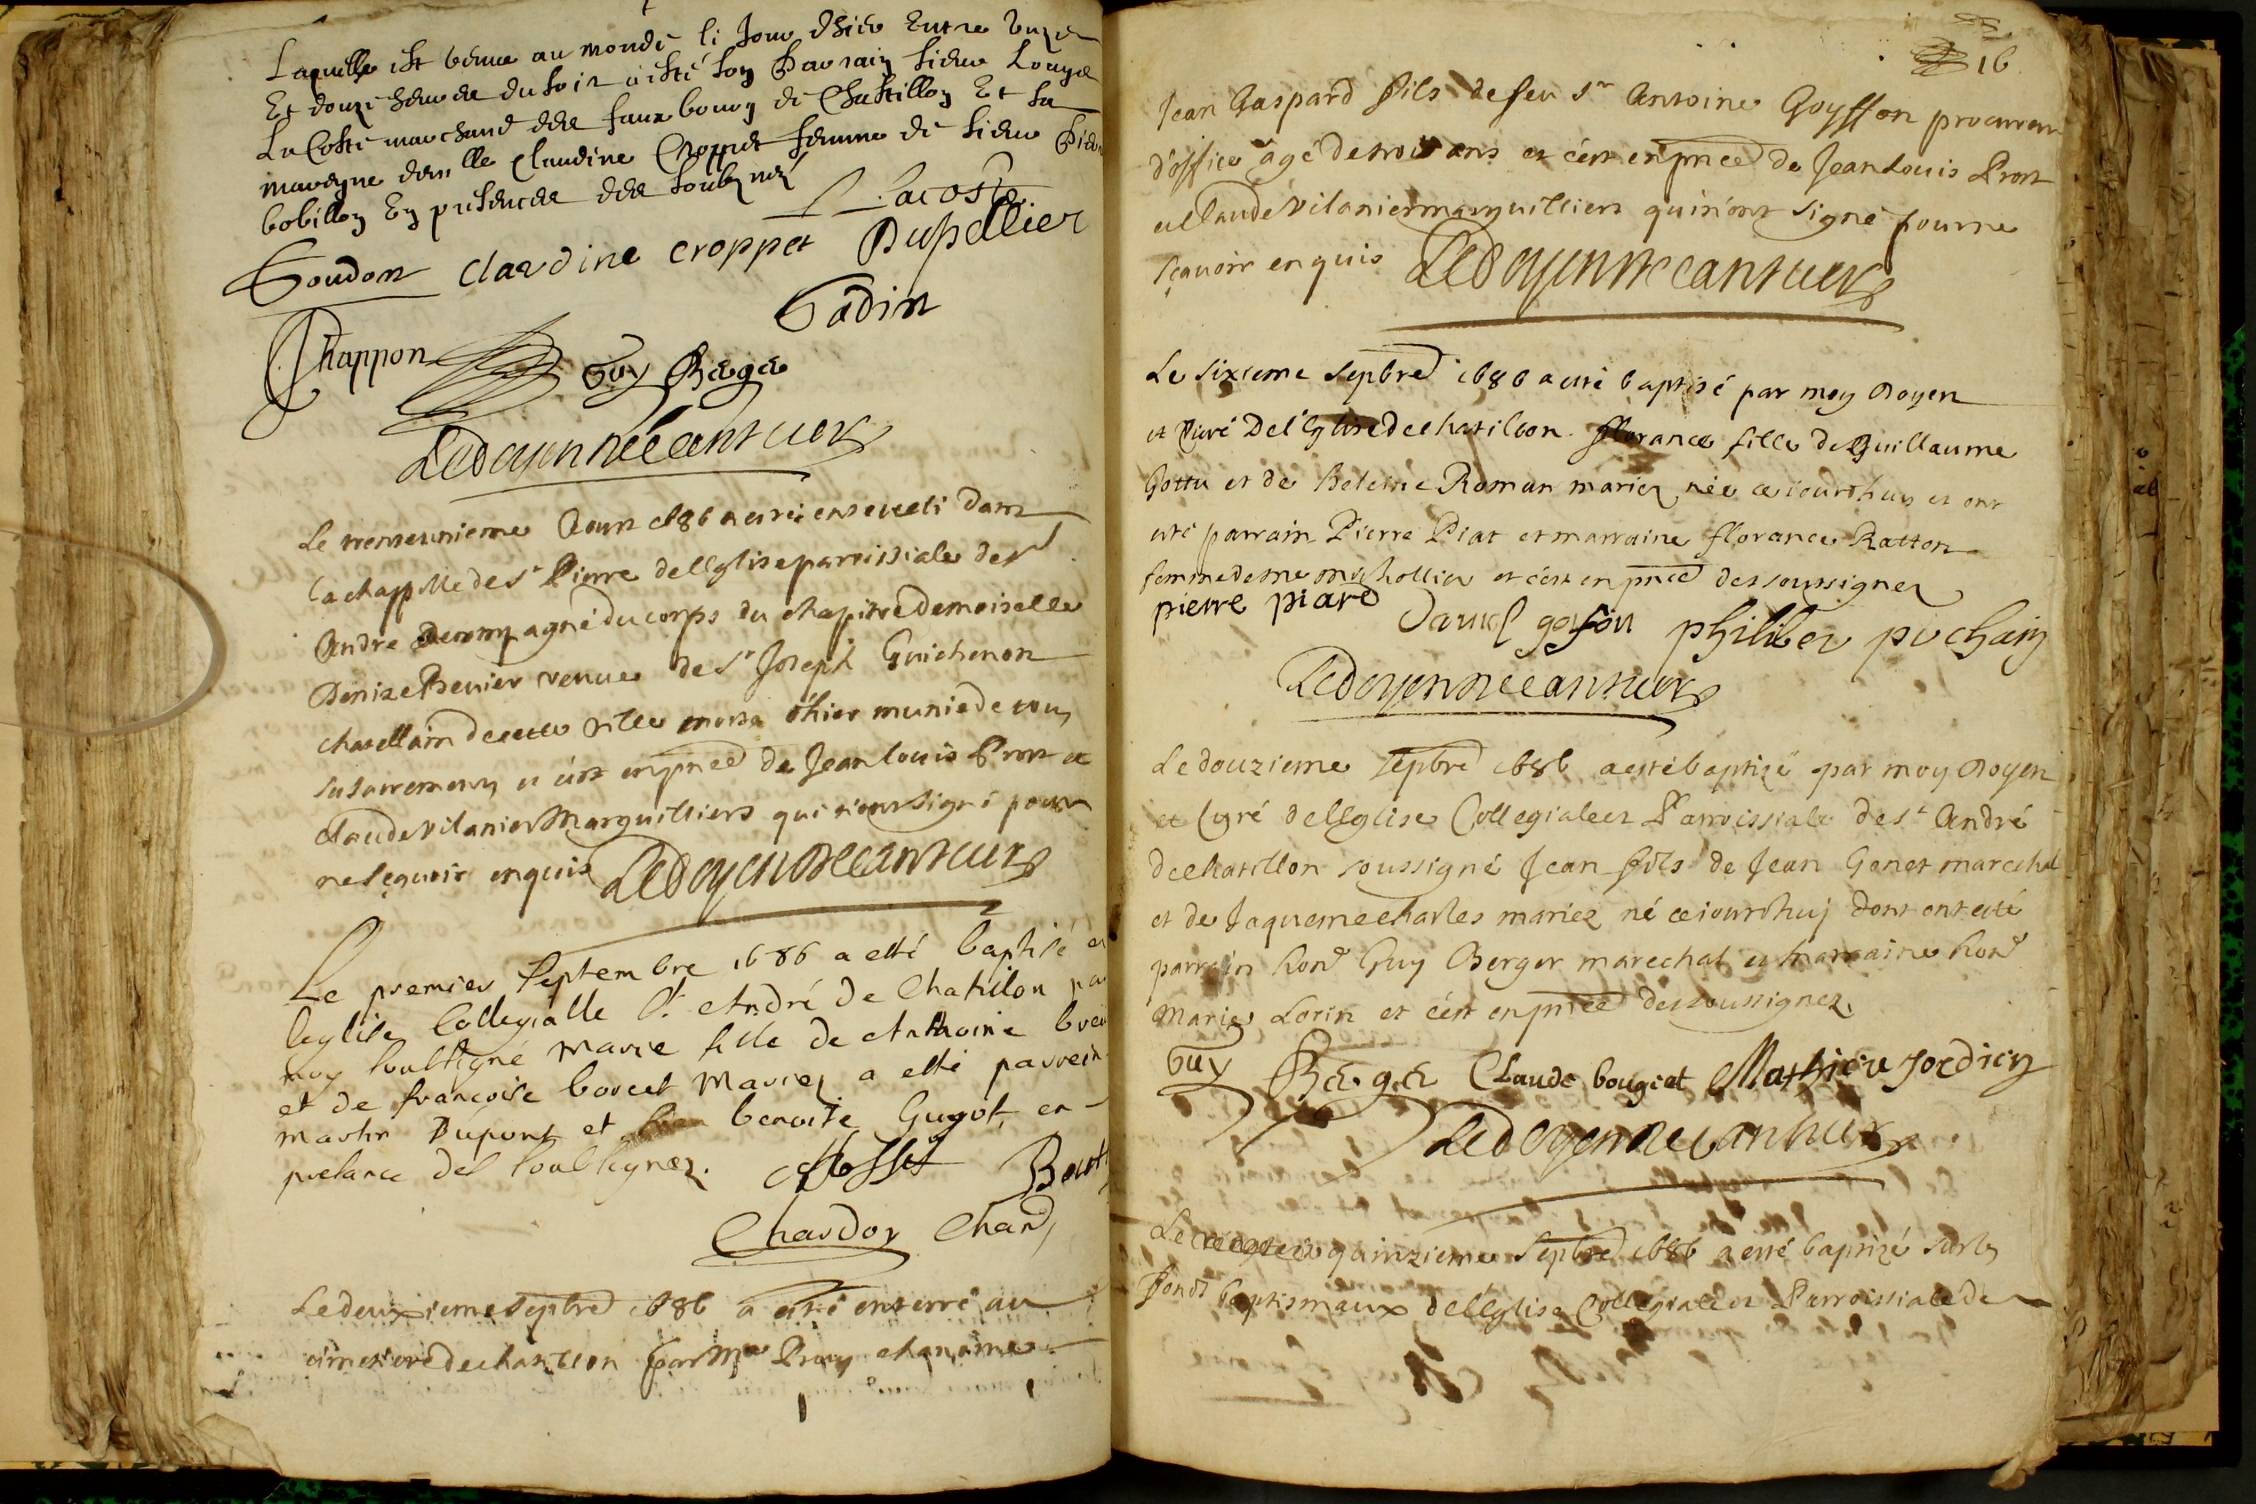 Laquelle est venue au monde le jour d'hier entre unze
Et douze heures du soir a esté son Parrain sieur Louys
LaCoste marchand des faux bourg de Chastillon Et sa
marayne dem.lle Claudine Croppet femme de sieur
bobillon En presences des soubznez
L Lacoste
Goudon claudine croppet Dupellier
Gadin
Chappon Guy Berge
Le trente unieme Aoust 1686 a esté enseveli dans
la chappelle de St Pierre de l'Eglise parroissiale de St
André accompagné du corps du chapitre demoiselle
Denize Bernier veuve de Sr Joseph Guichenon
chatellain de cette ville morte d'hier munie de tous
sacrements et c'est en pnce de Jean louis Prost et
claude Vilanier Marguilliers qui n'ont signé pour
ne sçavoir enquis
Le premier Septembre 1686 a esté baptisé en
leglise Collegialle St André de Chatillon par
moy soussigné Marie fille de Anthoine
et de francoise borcet Mariez a esté parrein
Martin Dupont et benoite Guyot en
presance des soussignez.
Chardon Chan
Le deuxieme Septbre 1686 a esté enterré au
cimetiere de chatillon par Mre Proy chanoine
16
Jean Gaspard fils de feu Sr Antoine Goyffon procureur
d'office agé de trois ans et c'est en pnce de Jean Louis Prost
et Claude Vilanier marguilliers qui n'ont signé pour ne
sçavoir enquis
Le sixieme Septbre 1686 a esté baptisé par moy Doyen
et Curé De l'Eglise de chatillon florance fille de Guillaume
Gottu et de Roman mariez née ce jourd'huy et ont
esté parrain Pierre Piat et marraine florance Ratton
femme de et c'est en pnce des soussignez
pierre piard philiber puchain
Le douzieme Septbre 1686 a esté baptizé par moy Doyen
et Curé de l'Eglise Collegiale et Parroissiale de St André
de chatillon soussigné Jean fils de Jean Genet marechal
et de Jaqueme charles mariez né ce jourd'huy dont ont esté
parrain hon. Guy Berger marechal et marraine hon.
Marie Lorin et c'est en pnce des soussignez.
Guy Berge Claude bougiet Mathieu Jordien
Le quinzieme Septbre 1686 a esté baptizé sur les
Fonds baptismaux de l'Eglise Collegiale et Parroissiale de